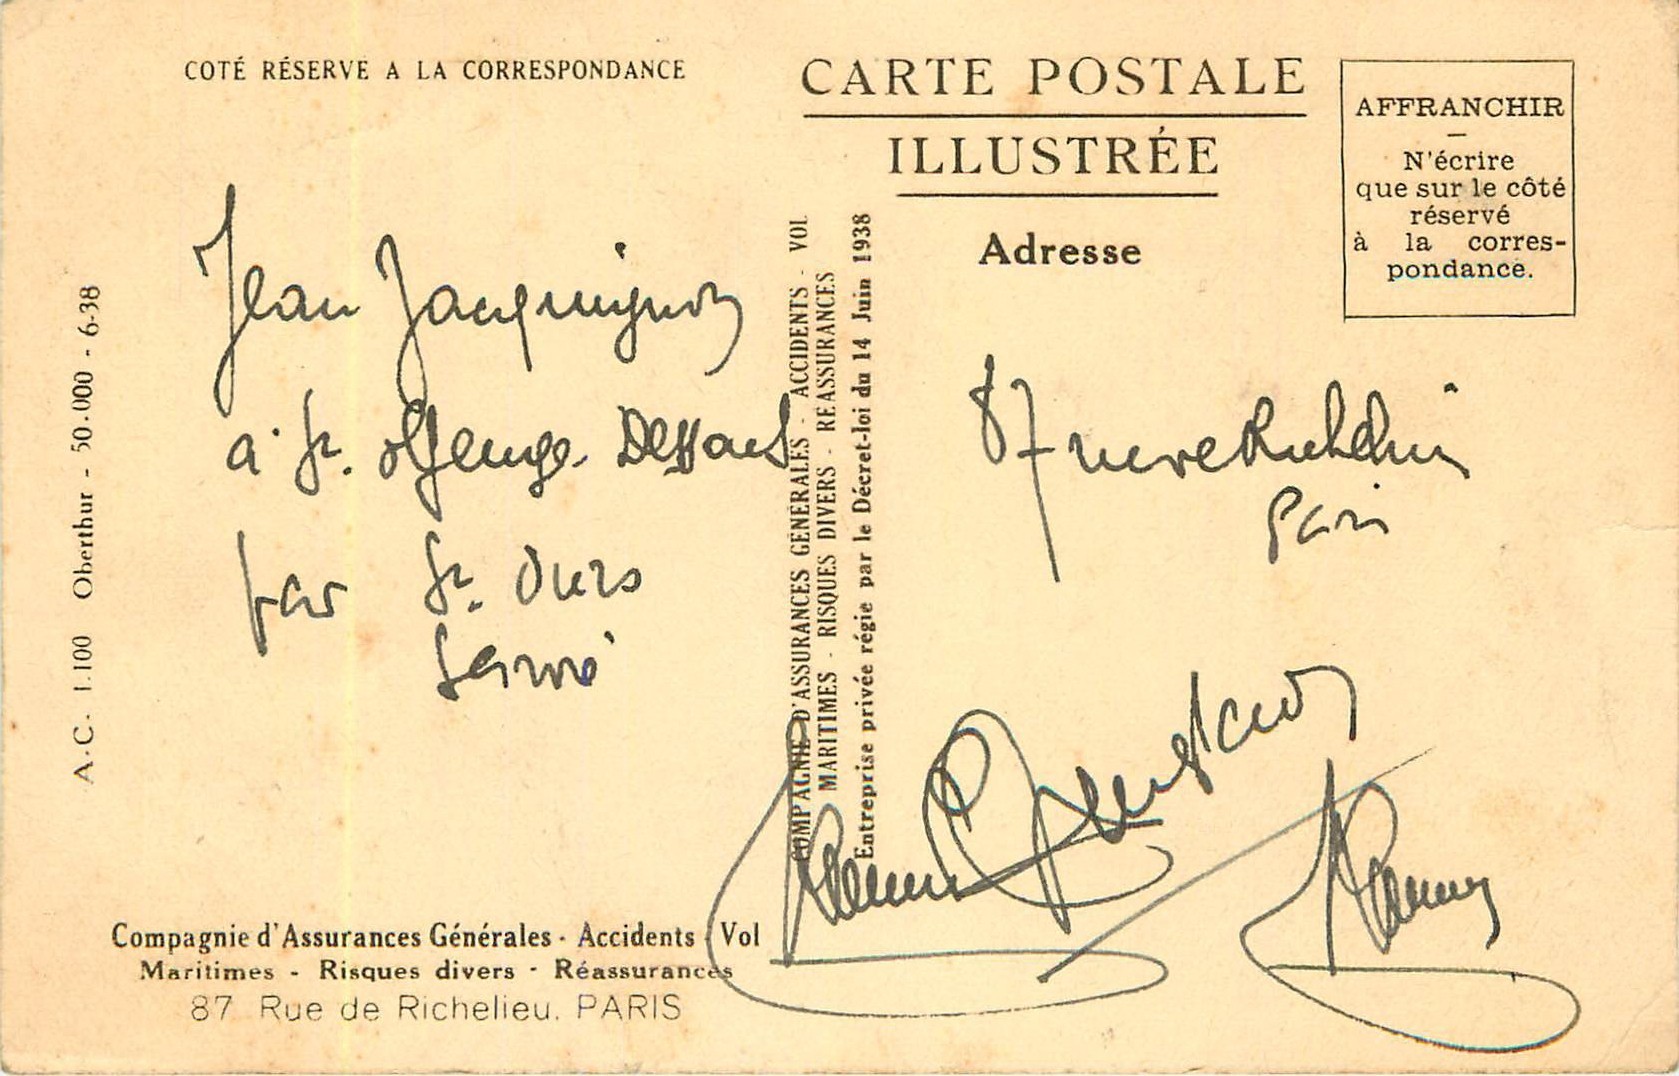 COTÉ RÉSERVÉ A LA CORRESPONDANCE
CARTE POSTALE
ILLUSTRÉE
Adresse
AFFRANCHIR
N'écrire
que sur le côté
réservé
à la corres-
pondance.
A.C. 1.100 Oberthur - 50.000 - 6-38
Jean Jacquignon
à St.
par St. Ours
COMPAGNIE D'ASSURANCES GENERALES - ACCIDENTS - VOL
MARITIMES - RISQUES DIVERS - REASSURANCES
Entreprise privée régie par le Décret-loi du 14 Juin 1938
87 rue de Richelieu
Paris
Compagnie d'Assurances Générales - Accidents - Vol
Maritimes - Risques divers - Réassurances
87 Rue de Richelieu. PARIS